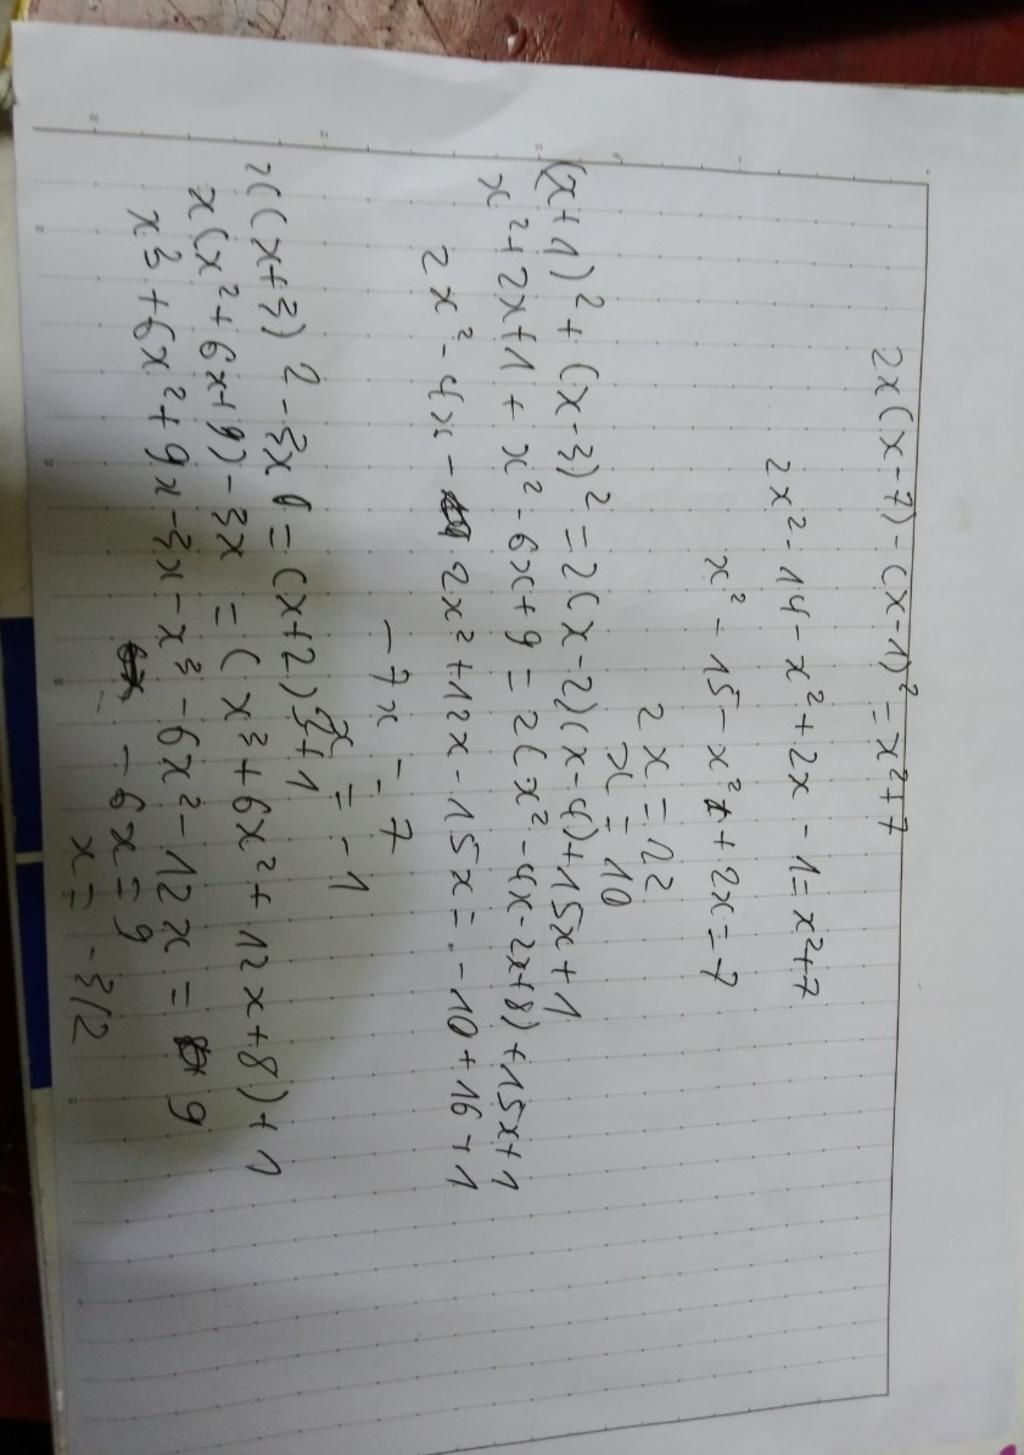 2x(x-7)-(x-1)²=x²+7
2x²-14-x²+2x-1=x²+7
x²-15-x²+2x=7
2x=22
x=10
(x+1)²+(x-3)²=2(x-2)(x-4)+15x+1
x²+2x+1+x²-6x+9=2(x²-4x-2x+8)+15x+1
2x²-4x-2x²+12x-15x=-10+16+1
-7x=7
x=-1
x(x+3)2-3x=(x+2)3+1
x(x²+6x+9)-3x=(x3+6x²+12x+8)+1
x3+6x²+9x-3x-x3-6x²-12x=9
-6x=9
x=-3/2